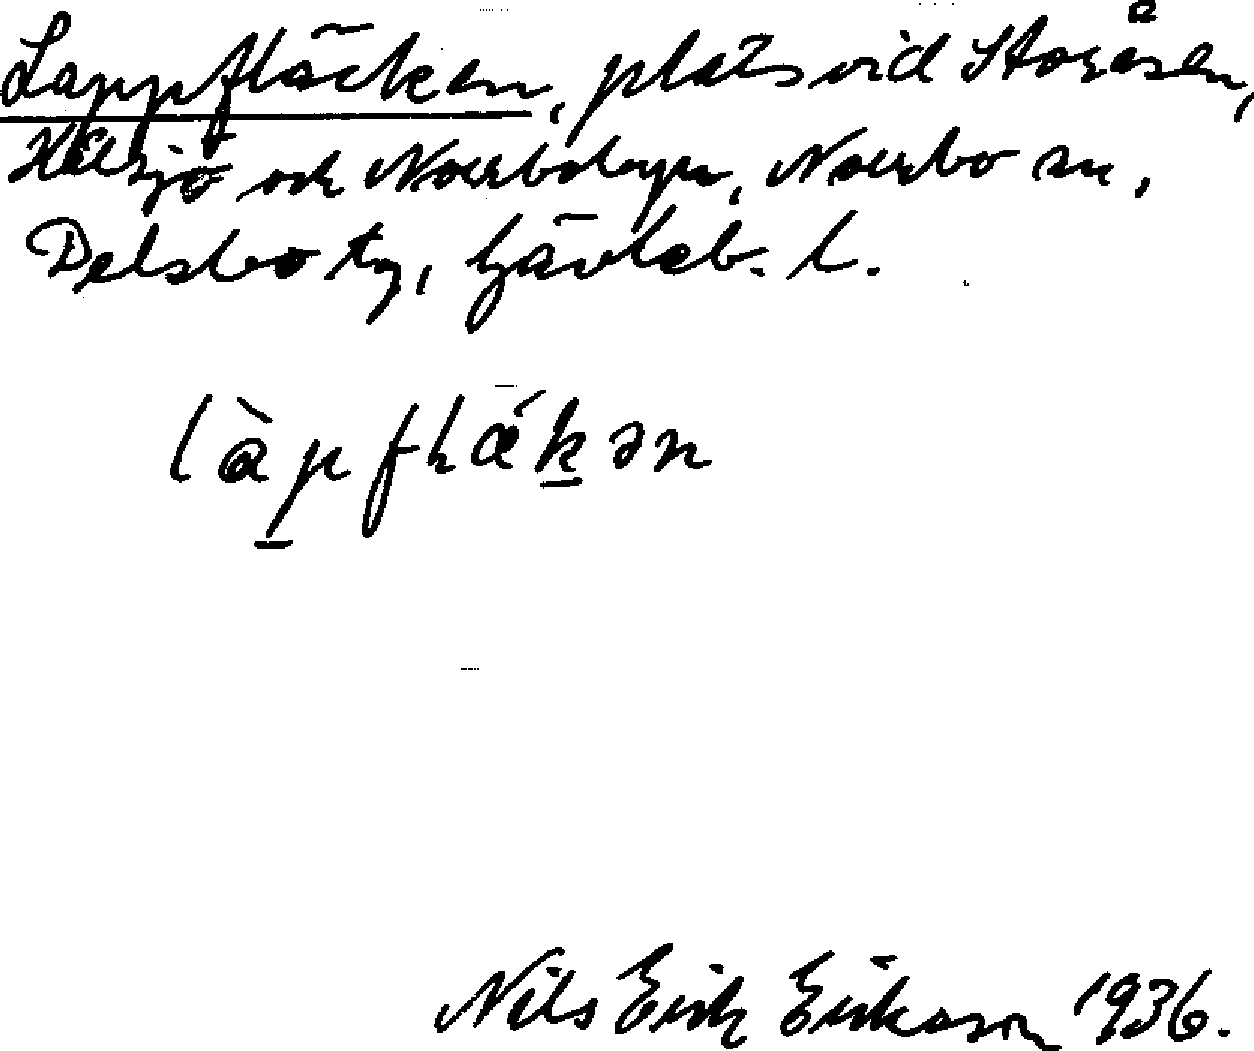 Lappfläcken, plats vid Storåsen,
Hålsjö och Norrbobyn, Norrbo sn,
Delsbo tg, Gävleb. l.
làpflǽkən
Nils Erik Erikson 1936.